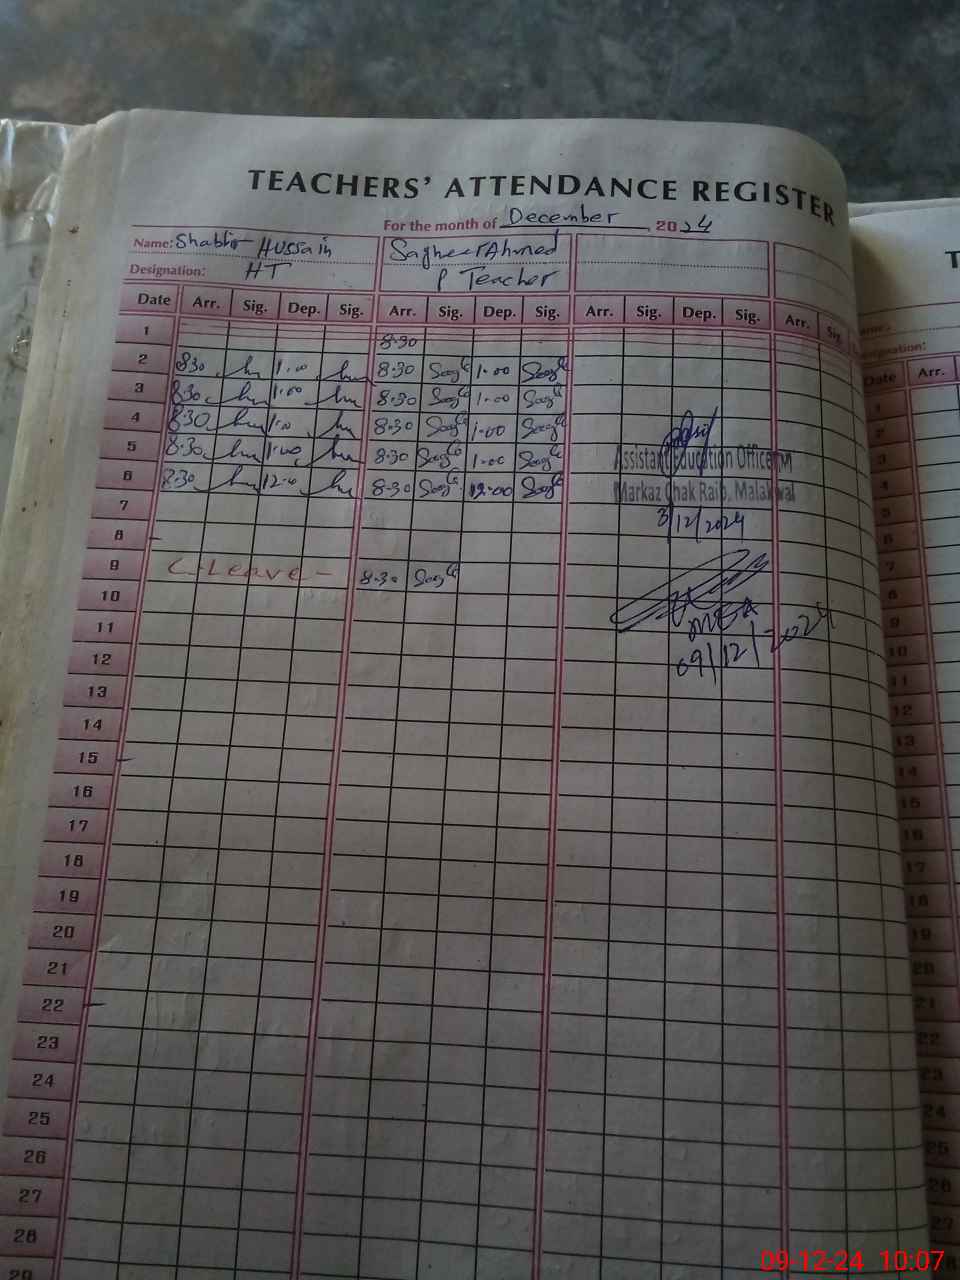 TEACHERS' ATTENDANCE REGISTER
For the month of December 2024
Name: Shabbir Hussain
Designation: HT
Sagheer Ahmed
P Teacher
Date Arr. Sig. Dep. Sig. Arr. Sig. Dep. Sig. Arr. Sig. Dep. Sig. Arr. Sig.
1 8-30
2 8:30 1.00 8-30 1-00
3 8:30 1.00 8-30 1-00
4 8:30 1.0 8-30 1-00
5 8:30 1.00 8-30 1-00
6 8:30 12.0 8-30 12-00
7
8
9 C-Leave- 8-30
10
11
12
13
14
15
16
17
18
19
20
21
22
23
24
25
26
27
28
29
Assistant Education Officer M
Markaz Chak Raib, Malakwal
3/12/2024
MEA
09/12/2024
T
Name:
signation:
Date Arr.
1
2
3
4
5
6
7
8
9
10
11
12
13
14
15
16
17
18
19
20
21
22
23
24
25
26
27
09-12-24 10:07